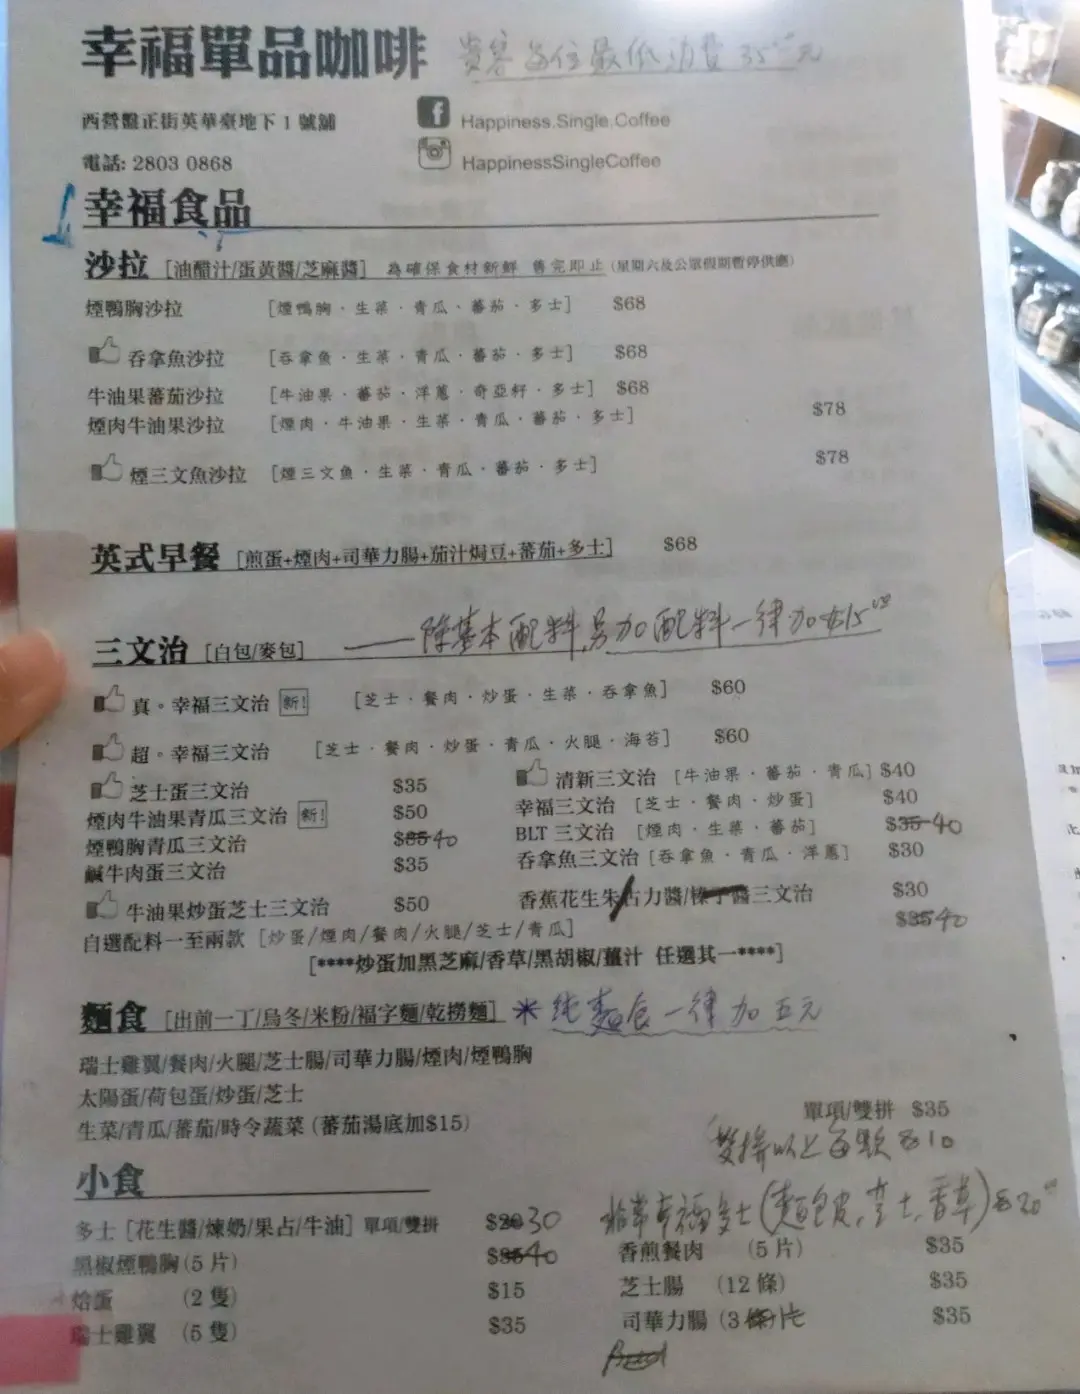 幸福單品咖啡 貴客每位最低消費 35元
西營盤正街英華臺地下 1 號舖
Happiness.Single.Coffee
電話: 2803 0868
HappinessSingleCoffee
幸福食品
沙拉 [油醋汁/蛋黃醬/芝麻醬] 為確保食材新鮮 售完即止 (星期六及公眾假期暫停供應)
煙鴨胸沙拉 [煙鴨胸·生菜·青瓜·蕃茄·多士] $68
吞拿魚沙拉 [吞拿魚·生菜·青瓜·蕃茄·多士] $68
牛油果蕃茄沙拉 [牛油果·蕃茄·洋蔥·奇亞籽·多士] $68
煙肉牛油果沙拉 [煙肉·牛油果·生菜·青瓜·蕃茄·多士] $78
煙三文魚沙拉 [煙三文魚·生菜·青瓜·蕃茄·多士] $78
英式早餐 [煎蛋+煙肉+司華力腸+茄汁焗豆+蕃茄+多士] $68
三文治 [白包/麥包] —— 除基本配料,另加配料一律加$15
真。幸福三文治 新! [芝士·餐肉·炒蛋·生菜·吞拿魚] $60
超。幸福三文治 [芝士·餐肉·炒蛋·青瓜·火腿·海苔] $60
芝士蛋三文治 $35 清新三文治 [牛油果·蕃茄·青瓜] $40
煙肉牛油果青瓜三文治 新! $50 幸福三文治 [芝士·餐肉·炒蛋] $40
煙鴨胸青瓜三文治 $35 40 BLT 三文治 [煙肉·生菜·蕃茄] $35 40
鹹牛肉蛋三文治 $35 吞拿魚三文治 [吞拿魚·青瓜·洋蔥] $30
牛油果炒蛋芝士三文治 $50 香蕉花生朱古力醬/榛子醬三文治 $30
自選配料一至兩款 [炒蛋/煙肉/餐肉/火腿/芝士/青瓜] $35 40
[****炒蛋加黑芝麻/香草/黑胡椒/薑汁 任選其一****]
麵食 [出前一丁/烏冬/米粉/福字麵/乾撈麵] * 純麵底一律加五元
瑞士雞翼/餐肉/火腿/芝士腸/司華力腸/煙肉/煙鴨胸
太陽蛋/荷包蛋/炒蛋/芝士
生菜/青瓜/蕃茄/時令蔬菜 (蕃茄湯底加$15) 單項/雙拼 $35
雙拼以上每款$10
小食
多士 [花生醬/煉奶/果占/牛油] 單項/雙拼 $20 30 非常幸福多士(麵包皮,芝士,香草)$20
黑椒煙鴨胸 (5 片) $35 40 香煎餐肉 (5 片) $35
烚蛋 (2 隻) $15 芝士腸 (12 條) $35
瑞士雞翼 (5 隻) $35 司華力腸 (3 條片) $35